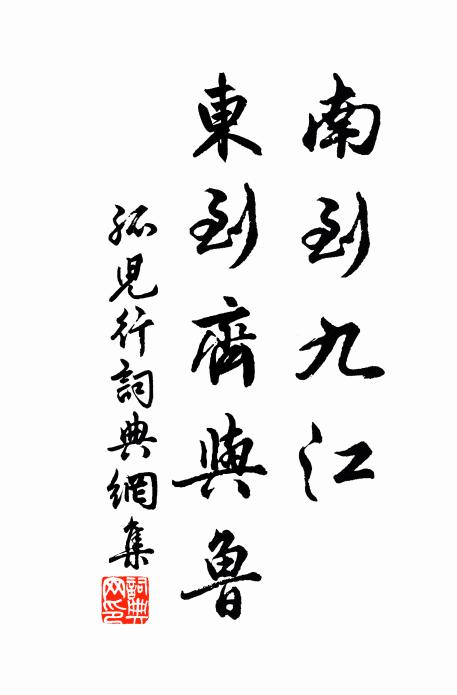 南到九江
東到齊與魯
孤兒行詞典網集
詞典
网印